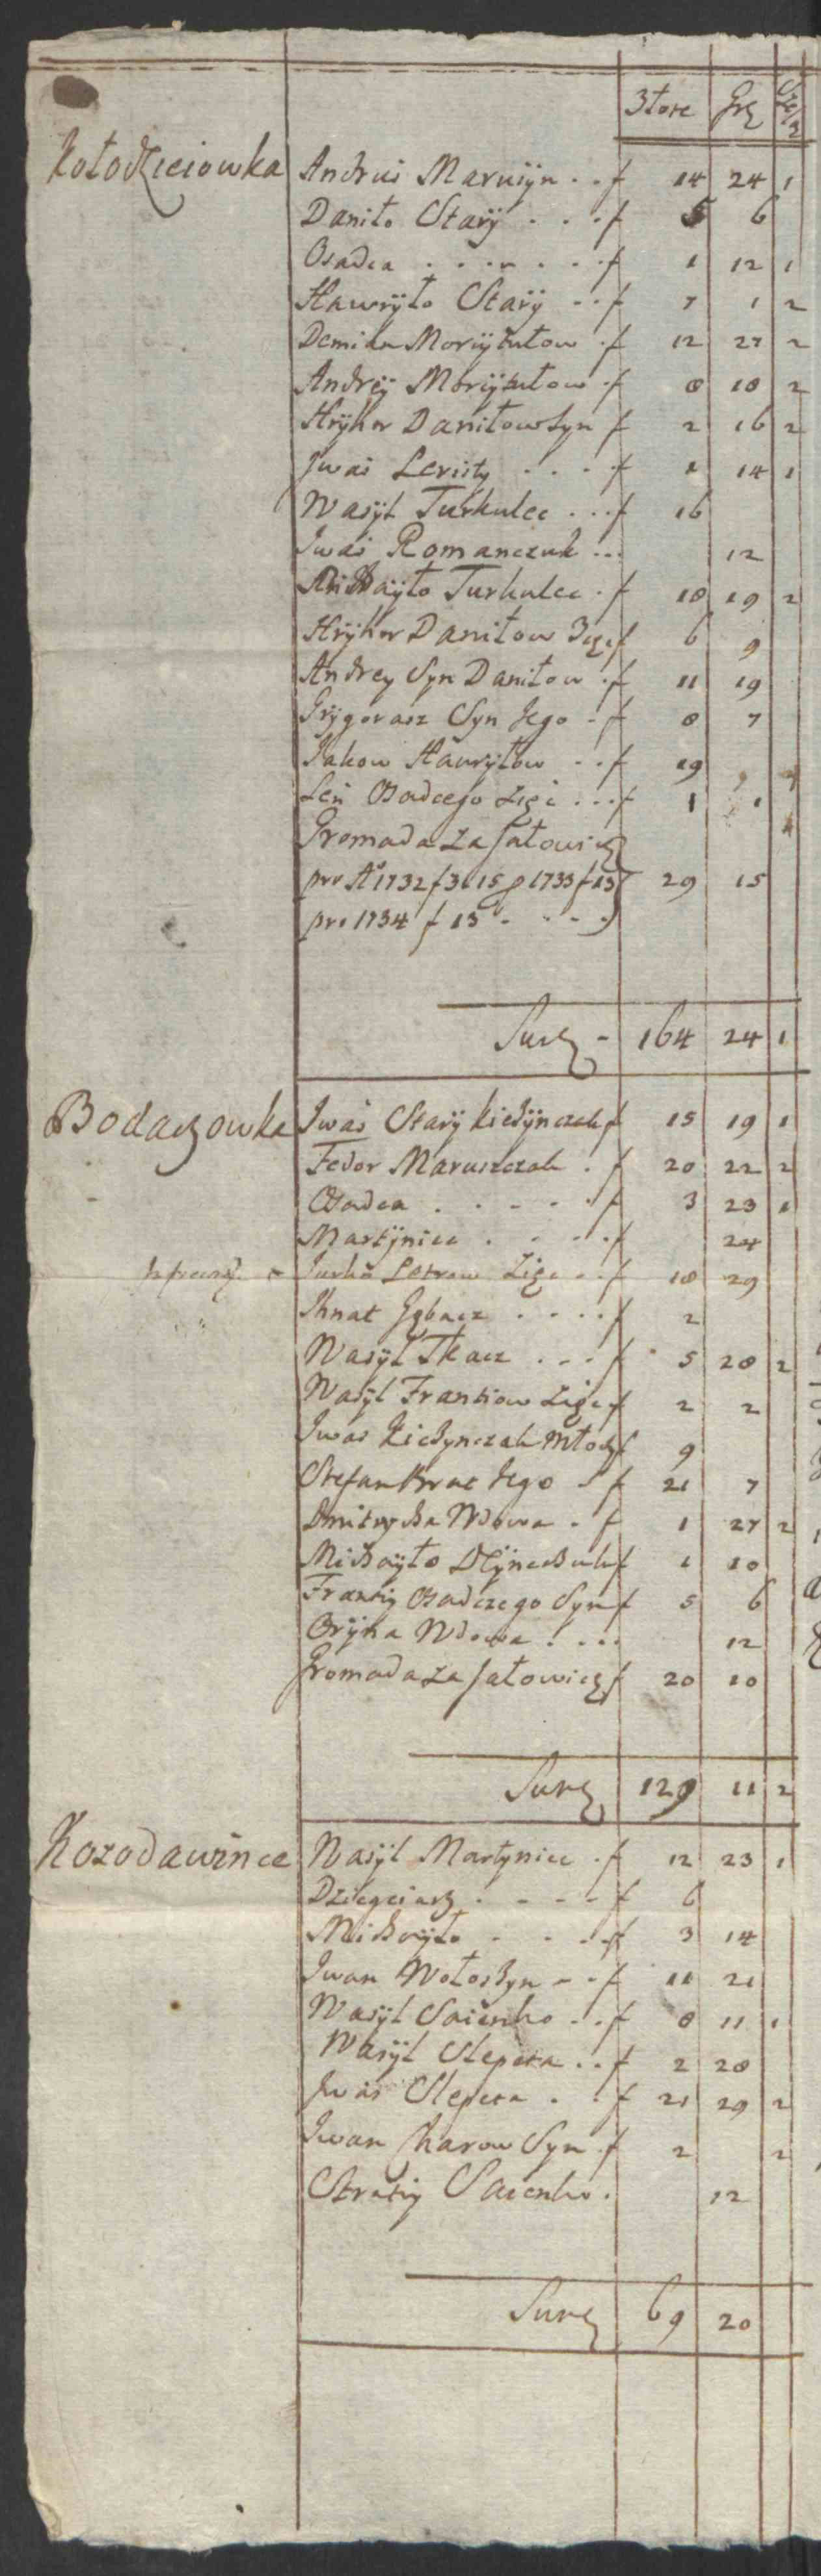 Złote Grz Szel
Kołodzieiowka Andrus Marusÿn . . f 14 24 1
Daniło Starÿ . . . f 5 6
Osadca . . . . . . f 1 12 1
Hawrÿło Starÿ . . f 7 1 2
Demian . f 12 27 2
Andreÿ . f 8 18 2
Hrÿhor Daniłow Syn f 2 16 2
Iwaś . . . . f 1 14 1
Wasÿl Turkulec . . . f 16
Iwaś Romanczuk . . . 12
Michaÿło Turkulec . f 18 19 2
Hrÿhor Daniłow Zięć f 6 9
Andrey Syn Daniłow . f 11 19
Grÿgorasz Syn Jego - f 8 7
Jakow Hawrÿłow . . f 19
Leń Osadcego Zięć . . . f 1 1
Gromada za Jałowicz
pro Aº 1732 f 3 15 p 1733 f 13 29 15
pro 1734 f 13 - - - -
Sum - 164 24 1
Bodaczowka Iwaś Starÿ Kiedÿnczak f 15 19 1
Fedor Maruszczak . f 20 22 2
Osadca . . . . . f 3 23 1
Martÿniec . . . . f 24
Zięć . . f 18 29
Ihnat . . . . f 2
Wasÿl Tkacz . . . f 5 28 2
Wasÿl Frankow Zięć f 2 2
Iwas Kiedynczak Młodz f 9
Stefan Brat Jego - f 21 7
Dmitrycha Wdowa . f 1 27 2
Michaÿło f 1 10
Osadczego Syn f 5 6
Orÿna Wdowa . . . . 12
Gromada za Jałowicz f 20 10
Sum 129 11 2
Kozodawince Wasÿl Martyniec . f 12 23 1
Dziegciarz . . . . f 6
Michaÿło . . . . f 3 14
Iwan Wołoszyn - - f 11 21
Wasÿl Saienko . . f 8 11 1
Wasÿl Slepeta . . f 2 28
Iwaś Slepeta . . f 21 29 2
Iwan Syn f 2 2
Saienko . 12
Sum 69 20